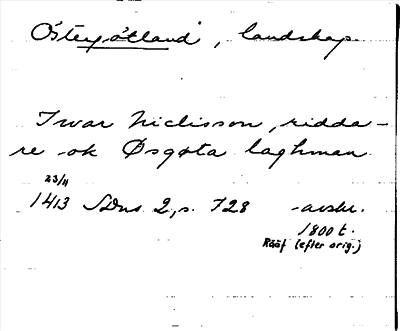 Östergötland, landskap.
Iwar Niclisson, ridda-
re ok Øsgøta laghman.
23/11
1413 SDns 2, s. 728 avskr.
1800 t.
Rääf (efter orig.)